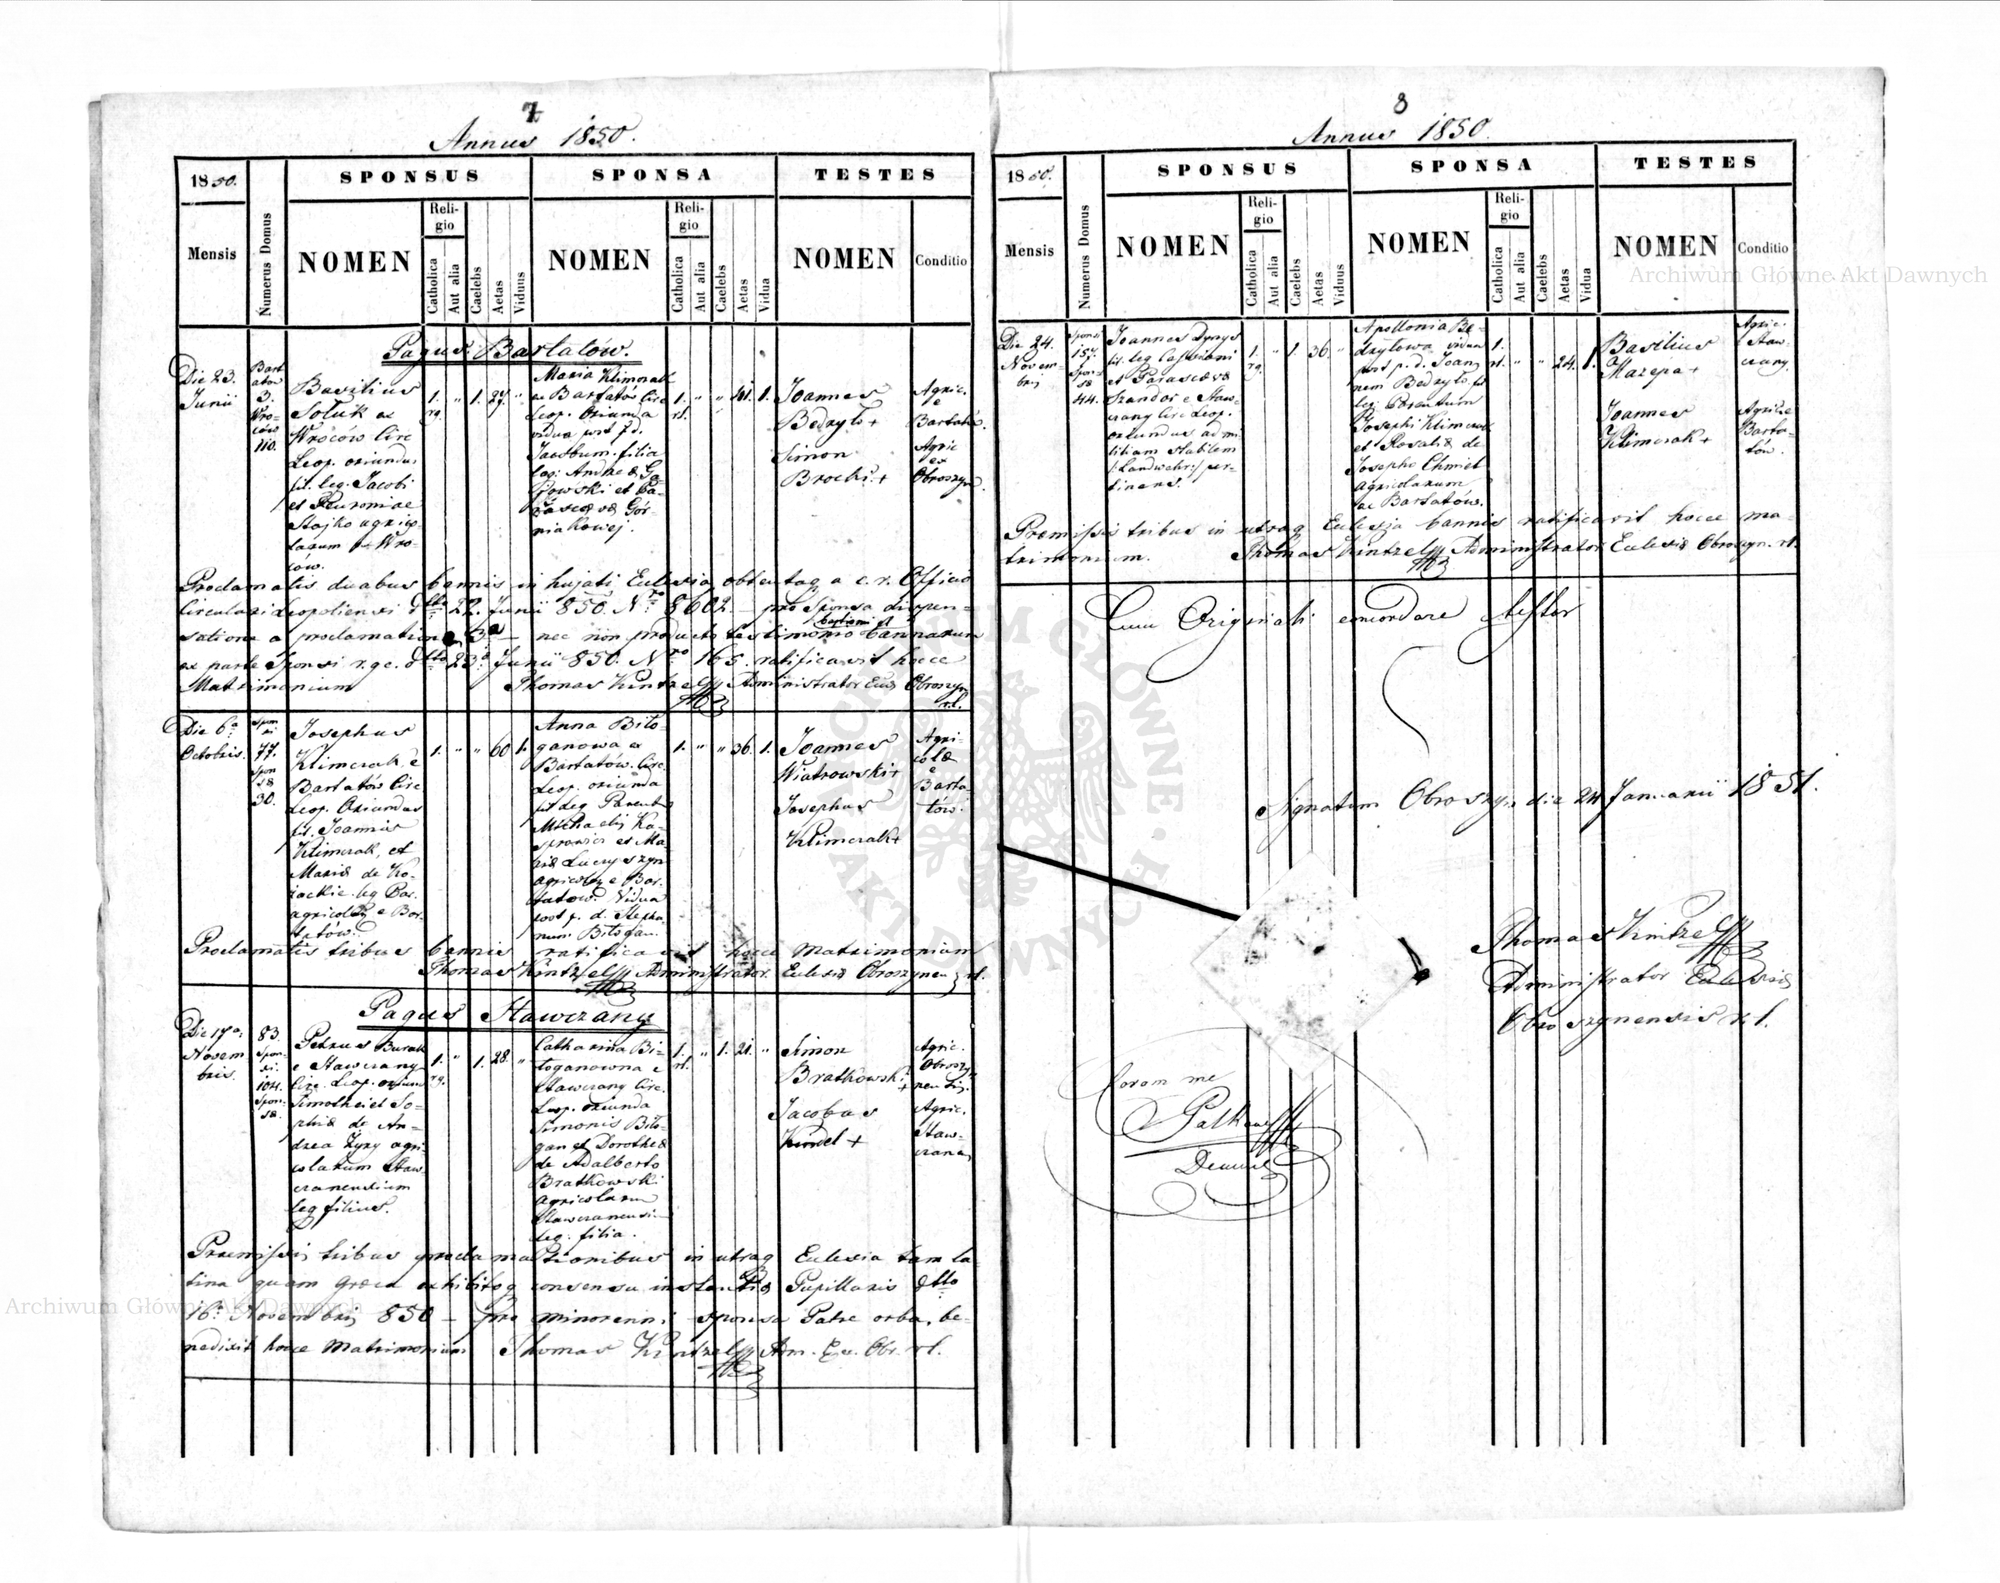 7
Annus 1850.
1850.
SPONSUS
SPONSA
TESTES
Mensis
Numerus Domus
NOMEN
Religio
Catholica
Aut alia
Caelebs
Aetas
Viduus
NOMEN
Religio
Catholica
Aut alia
Caelebs
Aetas
Vidua
NOMEN
Conditio
Pagus Bartatów.
Die 23.
Junii
Bartatow
3.
Wroców
110.
Basilius
Sotuk ex
Wroców Circ
Leop. oriundus
fil. leg. Jacobi
et
Stojko agrico-
larum
ców.
1.
rg.
"
1.
27.
"
Maria Klimczak
ex Bartatów Circ
Leop. Oriunda
vidua post p.d.
Jacobum. filia
leg. Andreæ
et Pa-
Gór-
niakowej.
1.
rl.
"
"
41.
1.
Joannes
Bedryło +
Simon
Agric.
e
Bartatów.
Agric
ex
Obroszyn.
Proclamatis duabus bannis in hujati Eclesia obtentaq a c. r. Officio
Circulari Leopoliensi dtto 22. Junii 850. Nro 8602 — pro Sponsa dispen-
satione a proclamatione 3a — nec non producto testimonio bannorum
ex parte Sponsi r.g.c. dtto 23. Junii 850. Nro 165. ratificavit hocce
Matrimonium Thomas Kintzel Administrator Obroszyn
r.l.
Die 6a
Octobris.
Sponsi
77.
Sponsæ
30.
Josephus
Klimczak e
Bartatów Circ
Leop. Oriundus
fil. Joannis
Klimczak, et
Mariæ de Ko-
zackie leg Par.
agricolar e Bar-
tatów.
1.
"
"
60
1.
Anna Biło-
ganowa ex
Bartatów. Circ.
Leop. oriunda
fil leg Parent
Michaelis Ka-
et Ma-
riæ
agricolar e Bar-
tatow. Vidua
post p. d. Stepha-
num Biłogan.
1.
"
"
36.
1.
Joannes
Wiatrowski +
Josephus
Klimczak +
Agri-
colæ
e
Barta-
tów.
Proclamatis tribus bannis ratificavit hocce Matrimonium
Thomas Kintzel Administrator Eclesiæ Obroszynen rl.
Pagus Stawczany
Die 17a
Novem
bris.
83.
Spon-
si.
104.
Spon-
sæ.
Petrus Burak
e Stawczany
Circ. Leop. oriund
Timothei et So-
phiæ de An-
drea agri-
colarum Staw-
czanensium
leg filius.
1.
rg.
"
1.
28.
"
Catharina Bi-
łoganowna e
Stawczany Circ.
Leop. oriunda
Simonis Biło-
gan et Dorotheæ
de Adalberto
Bratkowski
agricolarum
Stawczanensium
leg. filia.
1.
rl.
"
1.
21.
"
Simon
Bratkowski
+
Jacobus
Kindel +
Agric.
Obroszy-
nensis.
Agric.
Staw-
czanen
Præmissis tribus proclamationibus in utraq Eclesia tam la-
tina quam Græca exhibitoq consensu instantiæ Pupillaris dtto
16. Novembris 850 — pro minorenni sponsa Patre orba, be-
nedixit hocce Matrimonium Thomas Kintzel Adm. Ec. Obr. rl.
8
Annus 1850.
1850.
SPONSUS
SPONSA
TESTES
Mensis
Numerus Domus
NOMEN
Religio
Catholica
Aut alia
Caelebs
Aetas
Viduus
NOMEN
Religio
Catholica
Aut alia
Caelebs
Aetas
Vidua
NOMEN
Conditio
Die 24.
Novem-
bris
Sponsi
157.
Sponsæ
44.
Joannes
fil. leg
et Parascevæ
Szandor e Staw-
czany Circ Leop.
oriundus ad mi-
litiam stabilem
Landwehr per-
tinens.
1.
rg.
"
1.
36.
"
Apollonia Be-
drytowa vidua
post p. d. Joan-
nem Bedryło. fil
leg. Parentum
Josephi Klimczak
et Rosaliæ de
Josepho Chmiel
agricolarum
ex Bartatów.
1.
rl.
"
"
24.
1.
Basilius
Mazepa +
Joannes
Klimczak +
Agric.
Staw-
czany.
Agricæ
Barta-
tów.
Premissis tribus in utraq Eclesia bannis ratificavit hocce ma-
trimonium. Thomas Kintzel Administrator Eclesiæ Obroszyn. rl.
Cum Originali concordare testor
Signatum Obroszyn die 24 Januarii 1851.
Thomas Kintzel
Administrator Eclesiæ
Obroszynensis r.l.
Coram me
Archiwum Główne Akt Dawnych
Archiwum Główne Akt Dawnych
ARCHIWUM GŁÓWNE AKT DAWNYCH